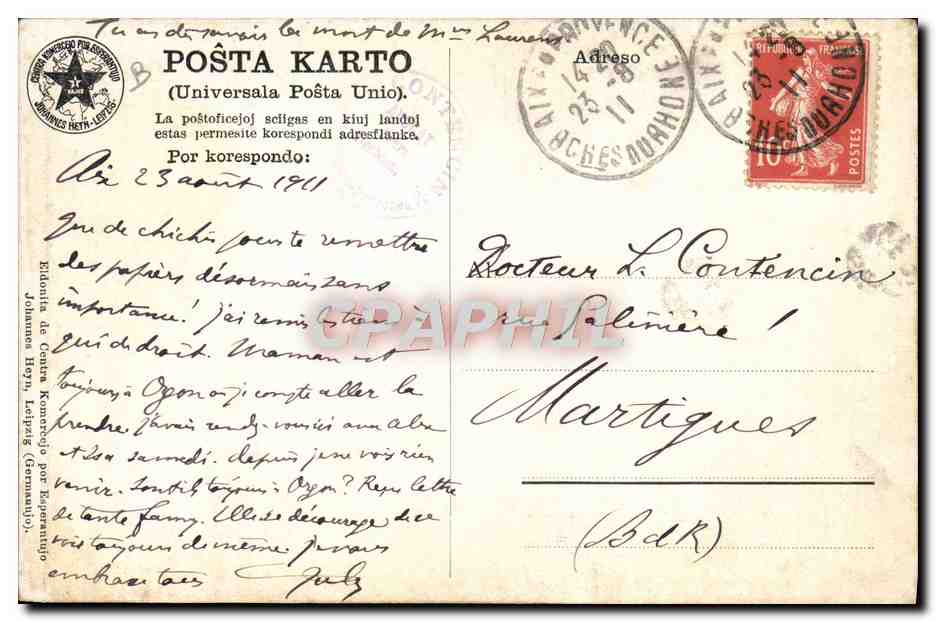 Tu as dû savoir la mort de Mme Laurens
POŜTA KARTO
(Universala Poŝta Unio).
La poŝtoficejoj sciigas en kiuj landoj
estas permesite korespondi adresflanke.
Por korespondo:
Adreso
CENTRA KOMERCEJO POR ESPERANTUJO
JOHANNES HEYN-LEIPZIG
B
AIX EN PROVENCE
14-20
23-8
11
BCHES DU RHONE
AIX
23-8
11
BCHES DU RHONE
REPUBLIQUE FRANÇAISE
10c
POSTES
Aix 23 août 1911
Que de chichis pour te remettre
des papiers désormais sans
importance! j'ai remis le tien à
qui de droit. Maman est
toujours à Orgon où je compte aller la
prendre. j'avais rendez-vous ici avec
et samedi. depuis je ne vois rien
venir. Sont ils toujours à Orgon? Reçu lettre
de tante Fanny. Elle se décourage de se
voir toujours de même. je vous
embrasse tous
Docteur L. Contencin
rue Galinière 1
Martigues
(BdR)
Eldonita de Centra Komercejo por Esperantujo
Johannes Heyn, Leipzig (Germanujo).
CPAPHIL